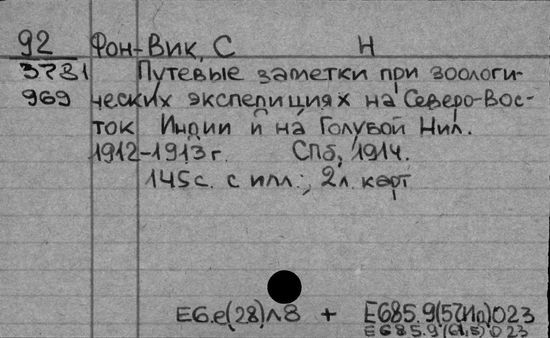 92 Фон-Вик, С Н
3781 Путевые заметки при зоологи-
969 ческих экспедициях на Северо-Вос-
ток Индии и на Голубой Нил.
1912-1913 г. СПб, 1914.
145 с. с илл.; 2 л. карт
Е6.е(28)л8 + Е685.9(57Ин)023
Е685.9(61,5)023